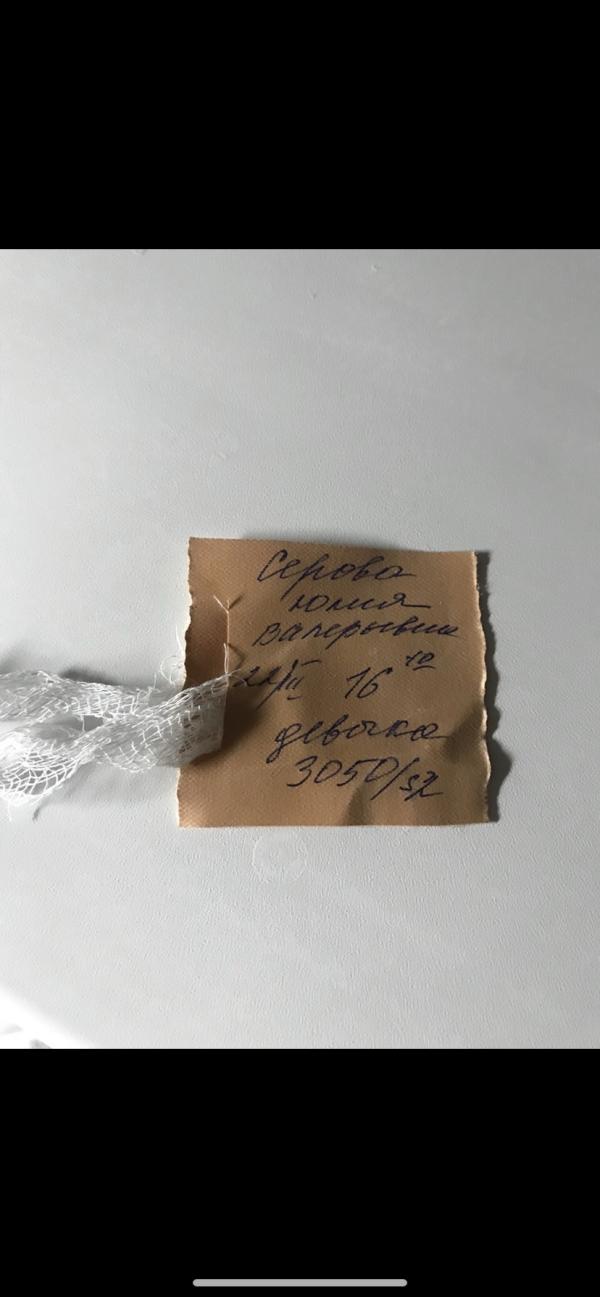 Серова
Юлия
Валерьевна
22/II 16 10
девочка
3050/52